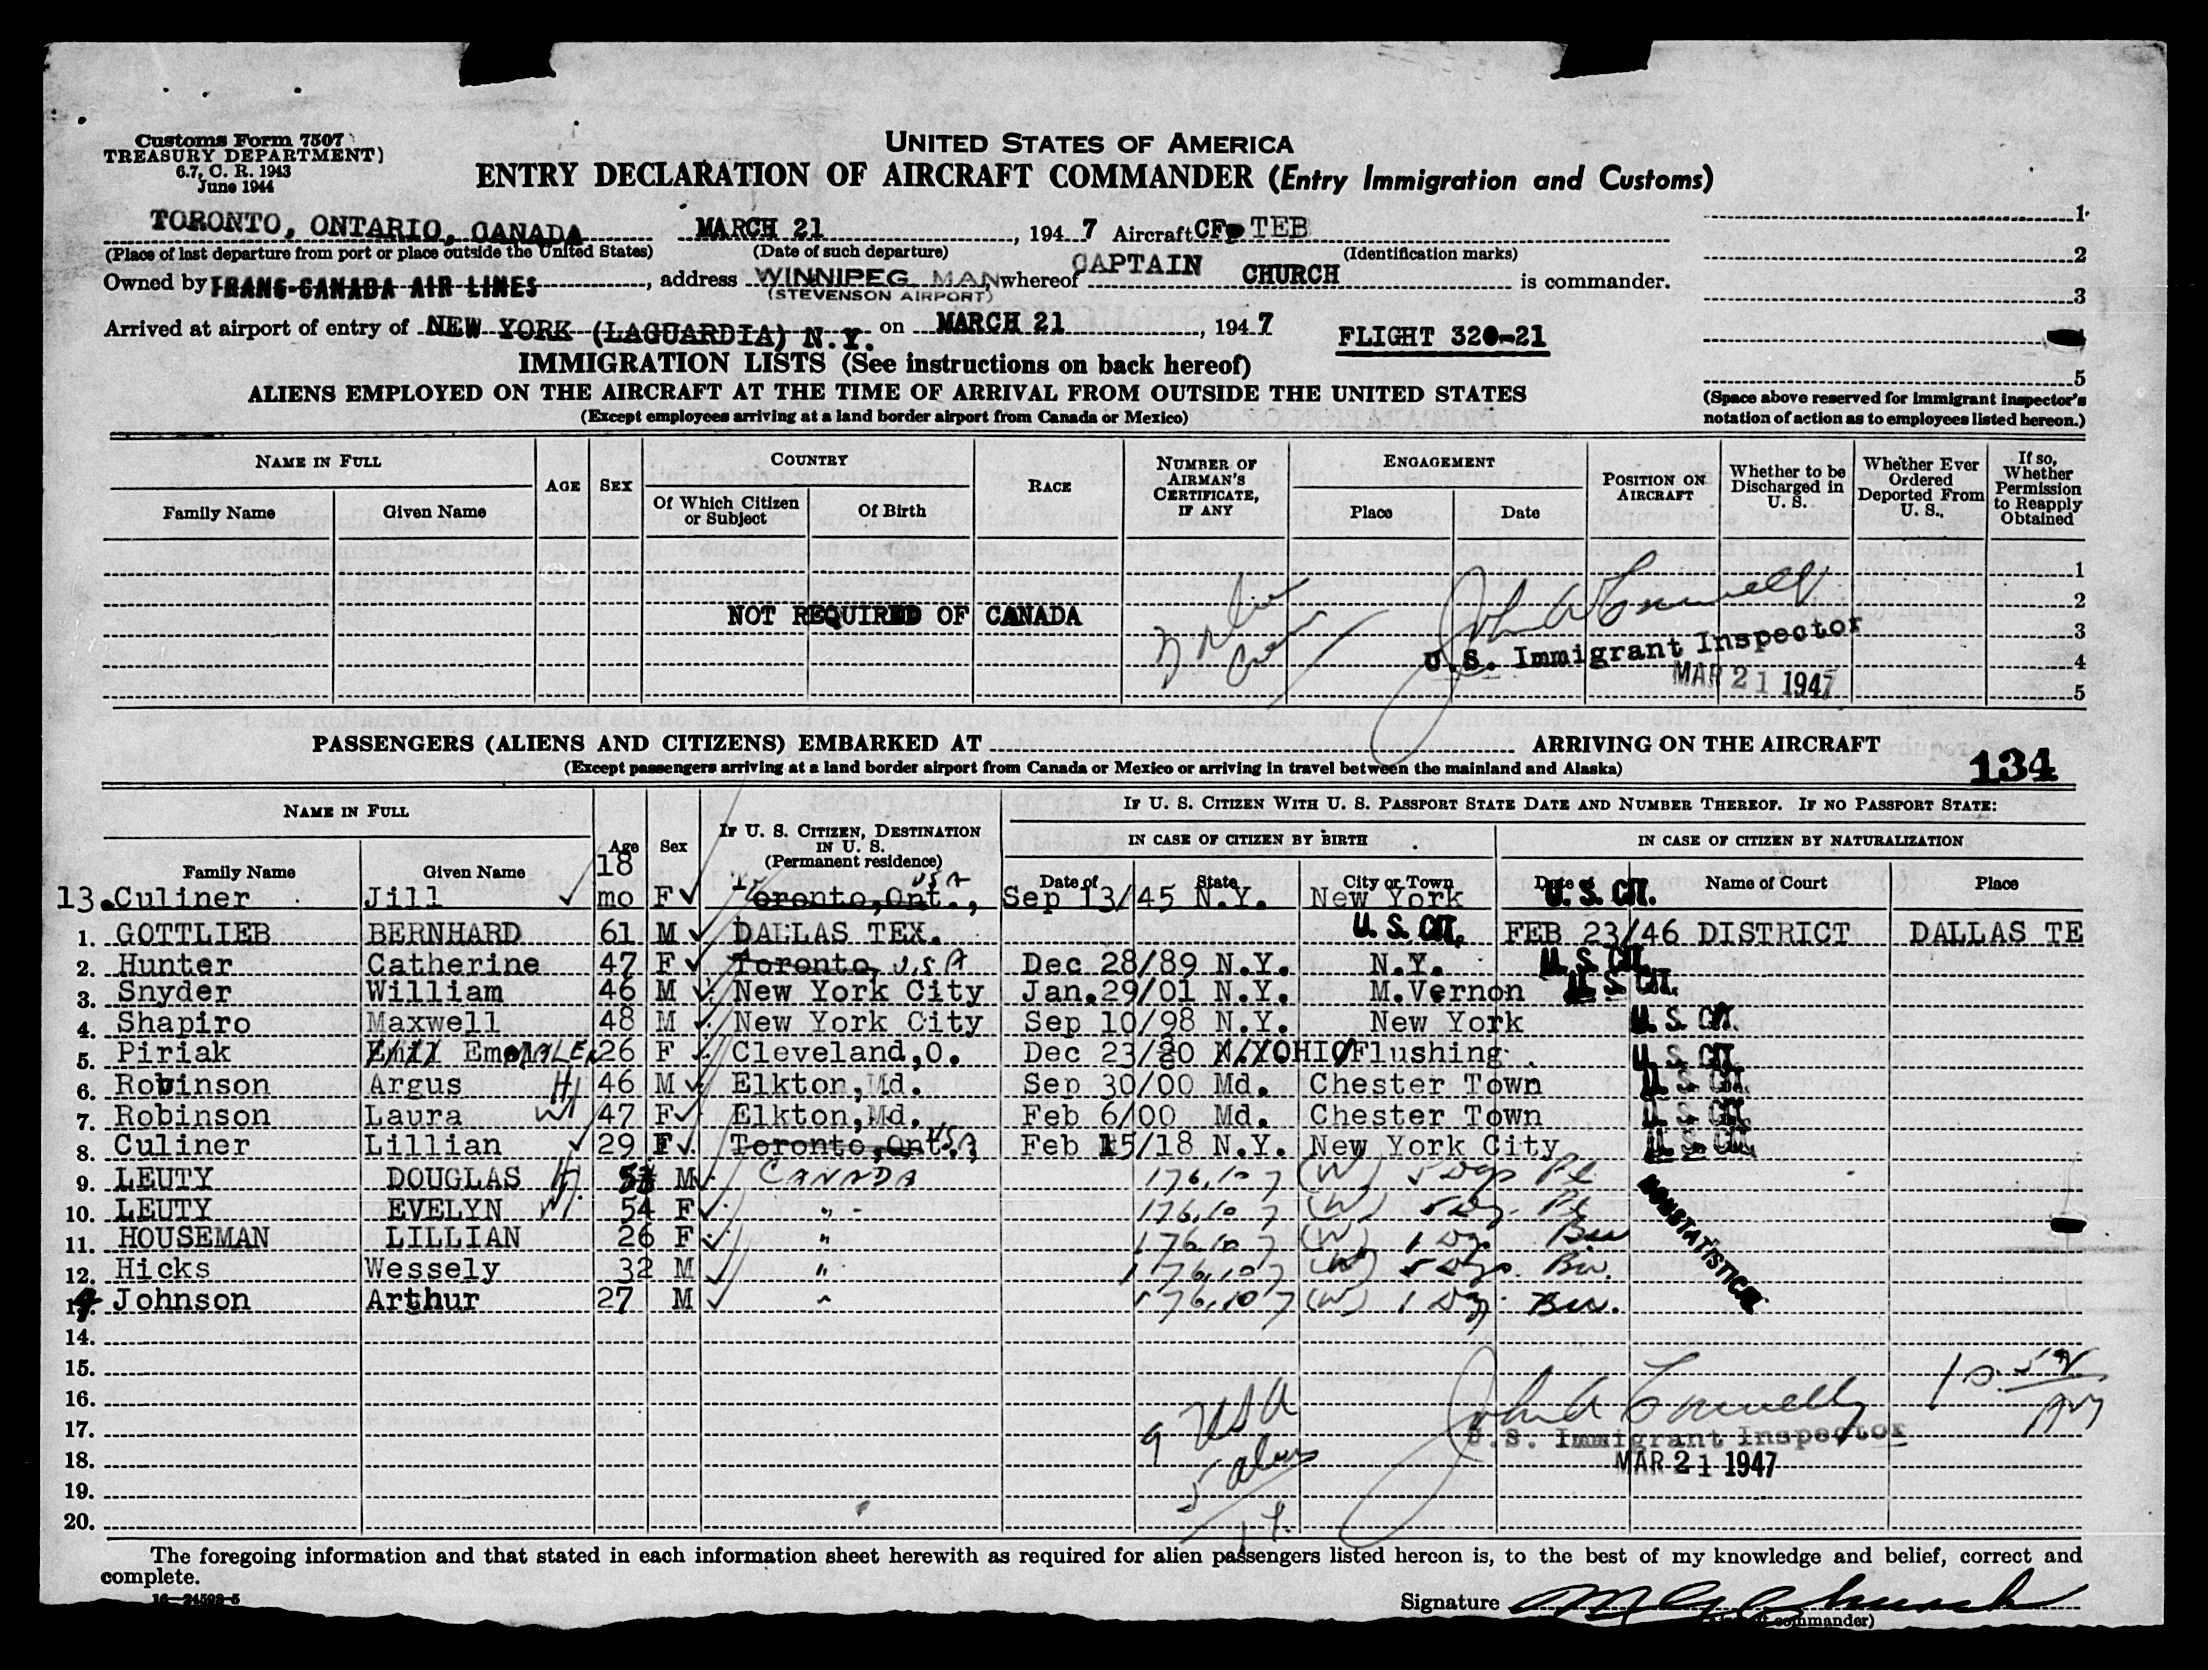 Customs Form 7507
TREASURY DEPARTMENT)
6.7, C. R. 1943
June 1944
UNITED STATES OF AMERICA
ENTRY DECLARATION OF AIRCRAFT COMMANDER (Entry Immigration and Customs)
TORONTO, ONTARIO, CANADA MARCH 21, 1947 Aircraft CF TEB
(Place of last departure from port or place outside the United States) (Date of such departure) (Identification marks)
Owned by TRANS-CANADA AIR LINES, address WINNIPEG MAN, whereof CAPTAIN CHURCH is commander.
(STEVENSON AIRPORT)
Arrived at airport of entry of NEW YORK (LAGUARDIA) N.Y. on MARCH 21, 1947 FLIGHT 320-21
1
2
3
5
(Space above reserved for immigrant inspector's
notation of action as to employees listed hereon.)
IMMIGRATION LISTS (See instructions on back hereof)
ALIENS EMPLOYED ON THE AIRCRAFT AT THE TIME OF ARRIVAL FROM OUTSIDE THE UNITED STATES
(Except employees arriving at a land border airport from Canada or Mexico)
NAME IN FULL AGE SEX COUNTRY RACE NUMBER OF AIRMAN'S CERTIFICATE, IF ANY ENGAGEMENT POSITION ON AIRCRAFT Whether to be Discharged in U. S. Whether Ever Ordered Deported From U. S. If so, Whether Permission to Reapply Obtained
Family Name Given Name Of Which Citizen or Subject Of Birth Place Date
1
2
NOT REQUIRED OF CANADA
3
John A Connelly
U.S. Immigrant Inspector
4
MAR 21 1947
5
PASSENGERS (ALIENS AND CITIZENS) EMBARKED AT ARRIVING ON THE AIRCRAFT
(Except passengers arriving at a land border airport from Canada or Mexico or arriving in travel between the mainland and Alaska)
134
NAME IN FULL Age Sex IF U. S. CITIZEN, DESTINATION IN U. S. (Permanent residence) IF U. S. CITIZEN WITH U. S. PASSPORT STATE DATE AND NUMBER THEREOF. IF NO PASSPORT STATE:
IN CASE OF CITIZEN BY BIRTH IN CASE OF CITIZEN BY NATURALIZATION
Family Name Given Name Date of State City or Town Date of Name of Court Place
13. Culiner Jill 18 mo F Toronto, Ont., USA Sep 13/45 N.Y. New York U. S. CIT.
1. GOTTLIEB BERNHARD 61 M DALLAS TEX. U. S. CIT. FEB 23/46 DISTRICT DALLAS TE
2. Hunter Catherine 47 F Toronto, U.S.A Dec 28/89 N.Y. N.Y. U. S. CIT.
3. Snyder William 46 M New York City Jan.29/01 N.Y. M.Vernon U. S. CIT.
4. Shapiro Maxwell 48 M New York City Sep 10/98 N.Y. New York U. S. CIT.
5. Piriak 26 F Cleveland,O. Dec 23/20 OHIO Flushing U. S. CIT.
6. Robinson Argus H 46 M Elkton,Md. Sep 30/00 Md. Chester Town U. S. CIT.
7. Robinson Laura W 47 F Elkton,Md. Feb 6/00 Md. Chester Town U. S. CIT.
8. Culiner Lillian 29 F Toronto,Ont., USA Feb 15/18 N.Y. New York City U. S. CIT.
9. LEUTY DOUGLAS H M CANADA 176.107 (W) 5 Dys Pl
10. LEUTY EVELYN W 54 F " 176.107 (W) 5 Dys. Pl
11. HOUSEMAN LILLIAN 26 F " 176.107 (W) 1 Dy Bus
12. Hicks Wessely 32 M " 176.107 (W) 5 Dys. Bus.
14. Johnson Arthur 27 M " 176.107 (W) 1 Dy. Bus.
NONSTATISTICAL
14.
15.
16.
17.
18.
19.
20.
9 USA
5 aliens
14
John A Connelly
U.S. Immigrant Inspector
MAR 21 1947
The foregoing information and that stated in each information sheet herewith as required for alien passengers listed hereon is, to the best of my knowledge and belief, correct and
complete.
16—24598-5
Signature
commander)